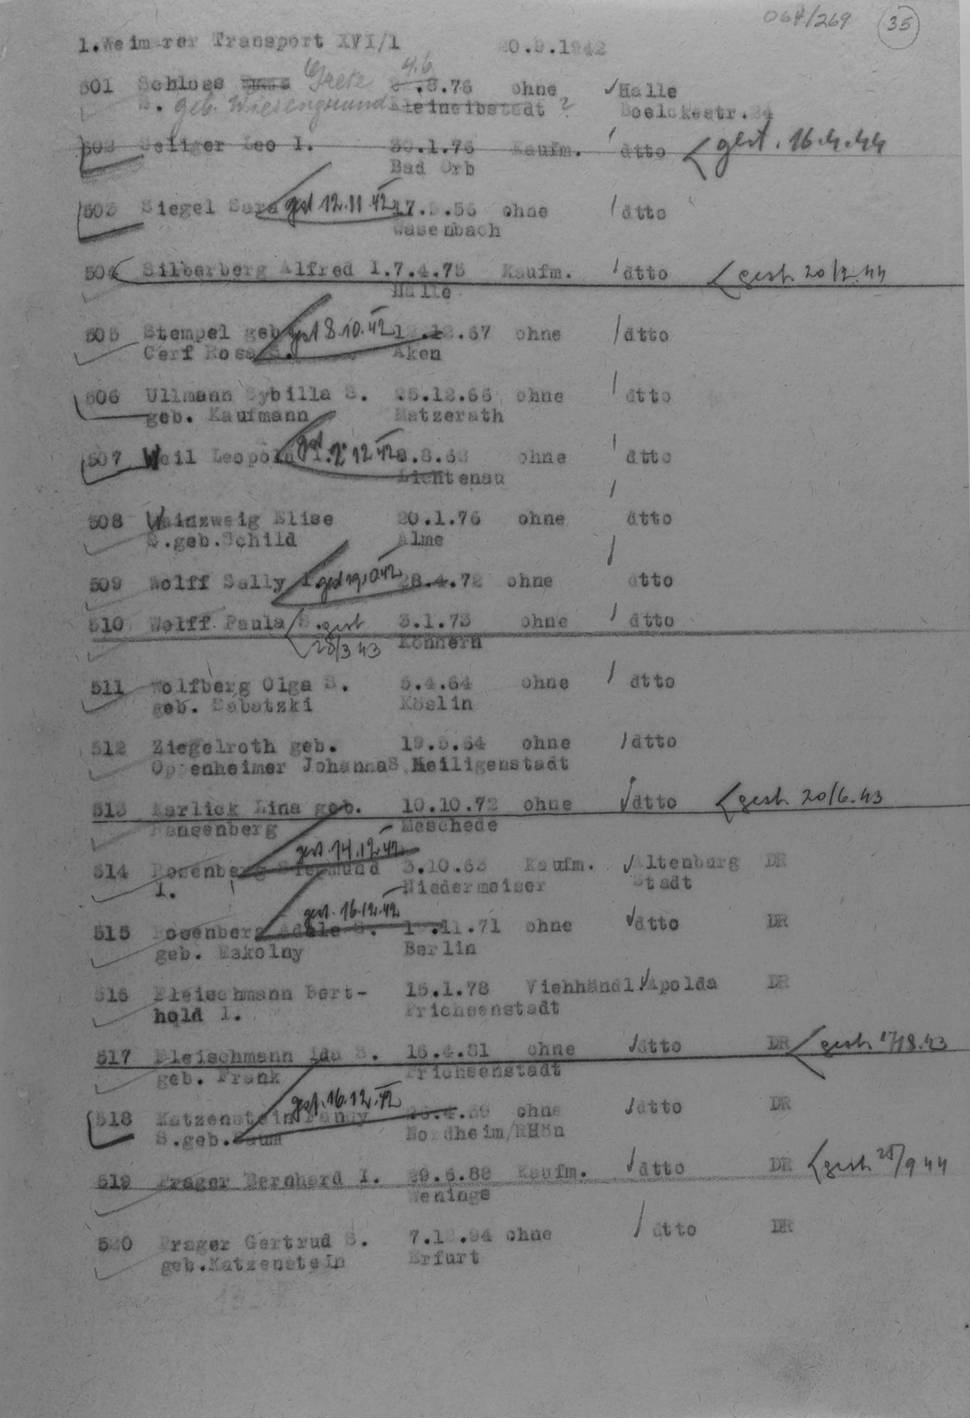 064/269 35
1.Weimarer Transport XVI/1 20.9.1942
501 Schloss Grete 4.6 .6.76 ohne Halle
S. geb. Wiesengrund Kleineibstadt ? Boelckestr.24
502 Seliger Leo I. 30.1.76 Kaufm. dtto gest. 16.4.44
Bad Orb
503 Siegel Sara gest 12.11.42 17.9.56 ohne dtto
Wasenbach
504 Silberberg Alfred I.7.4.75 Kaufm. dtto gest 20/2.44
Halle
505 Stempel geb. gest 8.10.42 12.12.67 ohne dtto
Cerf Rosa S. Aken
506 Ullmann Sybilla S. 25.12.66 ohne dtto
geb. Kaufmann Matzerath
507 Weil Leopold I. gest 2 12 42 8.8.63 ohne dtto
Lichtenau
508 Wainzweig Elise 20.1.76 ohne dtto
S.geb.Schild Alme
509 Wolff Sally I. gest 42 28.4.72 ohne dtto
510 Wolff Paula S. gest 3.1.73 ohne dtto
28/3 43 Könnern
511 Wolfberg Olga S. 5.4.64 ohne dtto
geb. Sabatzki Köslin
512 Ziegelroth geb. 19.5.64 ohne dtto
Oppenheimer JohannaS.Heiligenstadt
513 Karlick Lina geb. 10.10.72 ohne dtto gest 20/6.43
Rangenberg Meschede
514 Rosenberg Siegmund gest.14.12.42 3.10.63 Kaufm. Altenburg DR
I. Niedermeiser Stadt
515 Rosenberg Adele S. gest. 16.12.42 1 .11.71 ohne dtto DR
geb. Eskolny Berlin
516 Fleischmann Bert- 15.1.78 Viehhändl.Apolda DR
hold I. Prichsenstadt
517 Fleischmann Ida S. 16.4.81 ohne dtto DR gest 17/8.43
geb. Frank Prichsenstadt
518 Katzenstein Fanny gest.16.12.42 .4.69 ohne dtto DR
S.geb.Baum Nordheim/RHön
519 Prager Bernhard I. 29.6.88 Kaufm. dtto DR gest 28/9 44
Wenings
520 Prager Gertrud S. 7.12.94 ohne dtto DR
geb.Katzenstein Erfurt